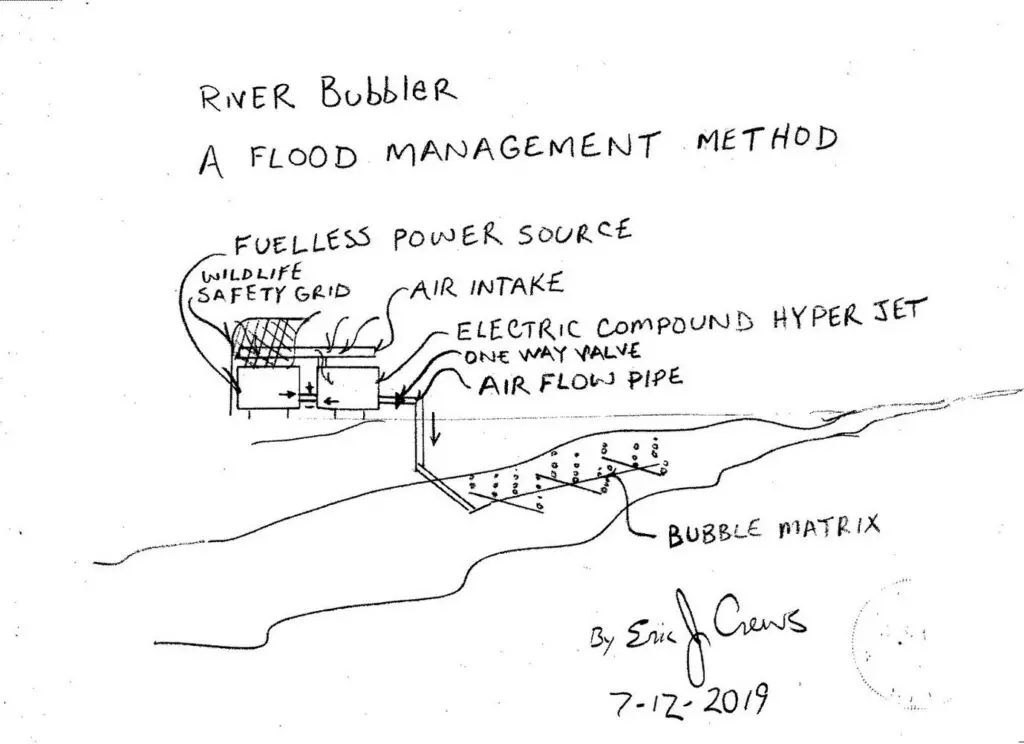 RIVER Bubbler
A FLOOD MANAGEMENT METHOD
FUELLESS POWER SOURCE
WILDLIFE
SAFETY GRID
AIR INTAKE
ELECTRIC COMPOUND HYPER JET
ONE WAY VALVE
AIR FLOW PIPE
BUBBLE MATRIX
By Eric J Crews
7-12-2019